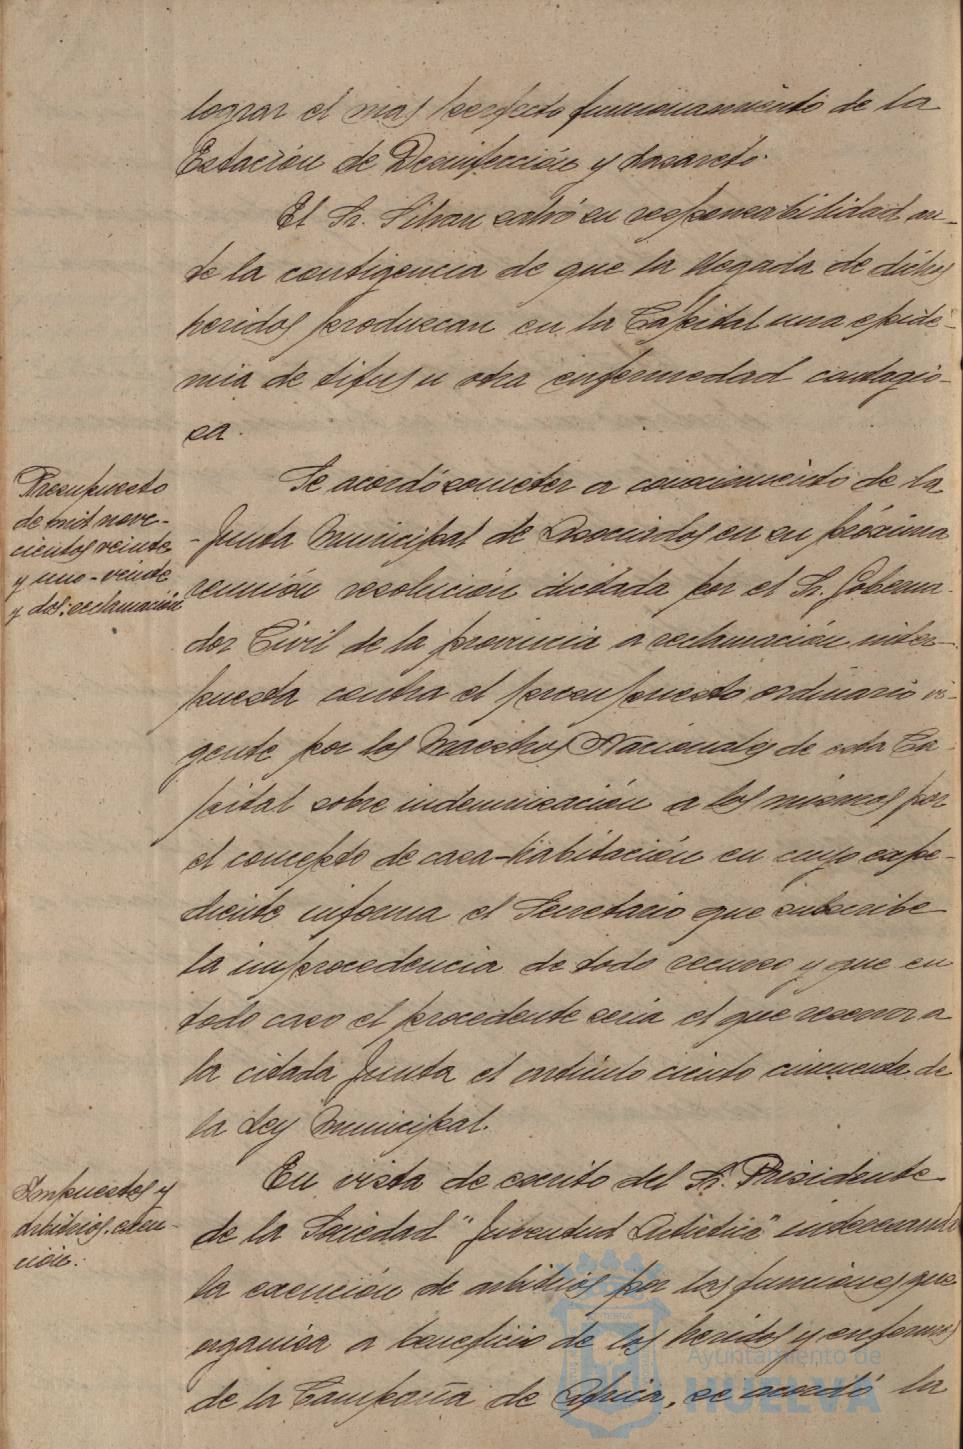 lograr el mas perfecto funcionamiento de la
Estación de Desinfección y Lazareto.
El Sr. salvó su responsabilidad an-
te la contigencia de que la llegada de dichos
heridos produzcan en la Capital una epide-
mia de tifus u otra enfermedad contagio-
sa.
Presupuesto
de mil nove-
cientos veinte
y uno-veinte
y dos: reclamación
Se acordó someter a conocimiento de la
Junta Municipal de Asociados en su próxima
reunión resolución dictada por el Sr. Goberna-
dor Civil de la provincia a reclamación inter-
puesta contra el presupuesto ordinario vi-
gente por los Maestros Nacionales de esta Ca-
pital sobre indemnización a los mismos por
el concepto de casa-habitación en cuyo expe-
diente informa el Secretario que subscribe
la improcedencia de todo recurso y que en
todo caso el procedente seria el que reserva a
la citada Junta el articulo ciento cincuenta de
la Ley Municipal.
Impuestos y
arbitrios. exen-
ción.
En vista de escrito del Sr. Presidente
de la Sociedad "Juventud Artística" interesando
la exención de arbitrios por las funciones que
organiza a beneficio de los heridos y enfermos
de la Campaña de Africa, se acordó la
Ayuntamiento de
HUELVA